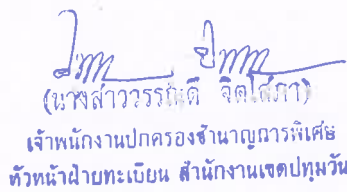 (นางสาววรรณดี จิตโสภา)
เจ้าพนักงานปกครองชำนาญการพิเศษ
หัวหน้าฝ่ายทะเบียน สำนักงานเขตปทุมวัน